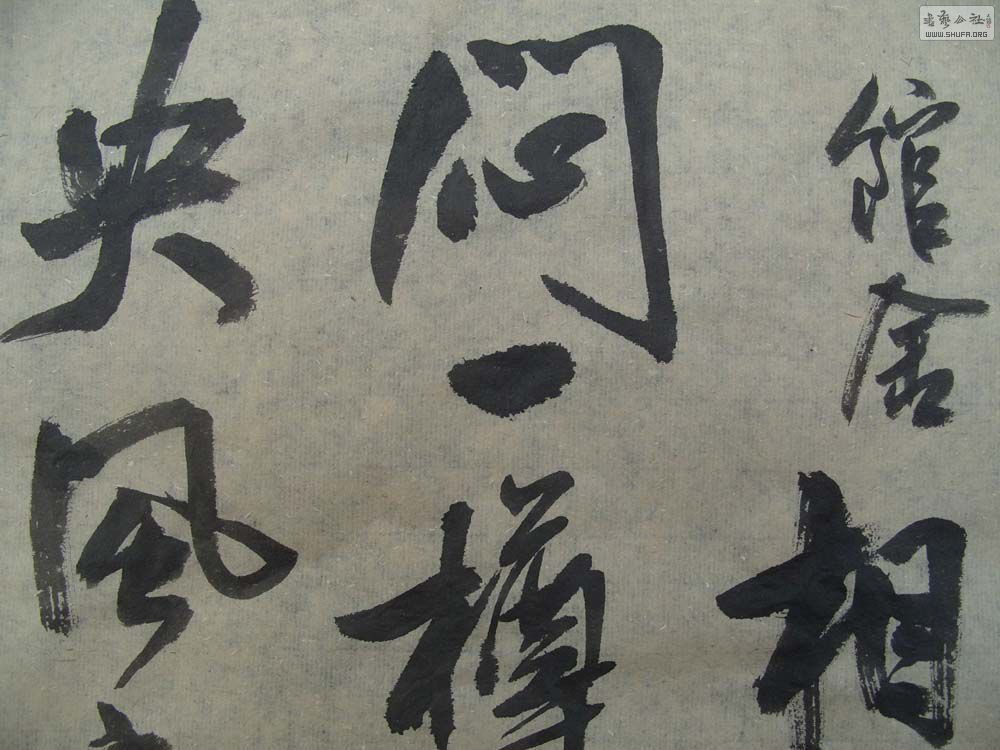 館舍相
悶一樽
央風
書藝公社
WWW.SHUFA.ORG